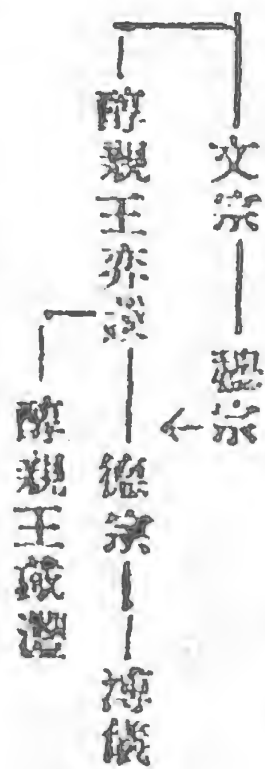 文宗
穆宗
醇親王奕譞
德宗
溥儀
醇親王載灃